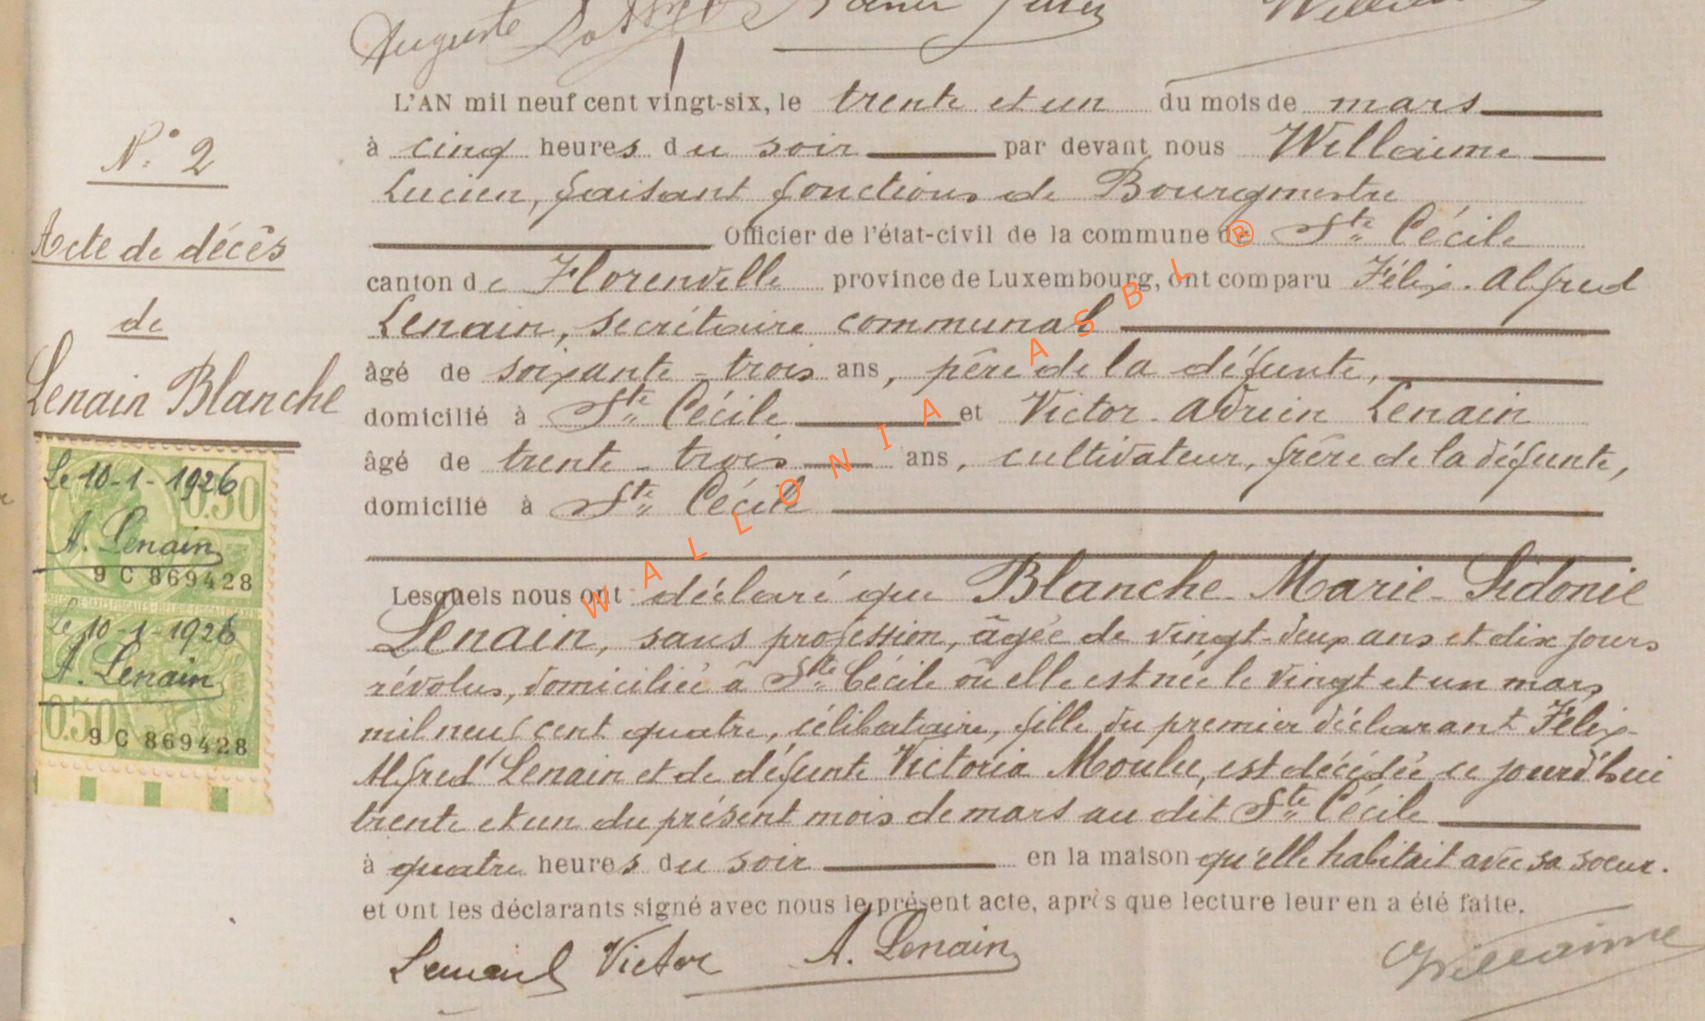 Auguste
N.° 2
Acte de décès
de
Lenain Blanche
Le 10-1-1926
0.50
A. Lenain
9 C 869428
Le 10-1-1926
A. Lenain
0.50
9 C 869428
L'AN mil neuf cent vingt-six, le trente et un du mois de mars
à cinq heures du soir par devant nous Willaime
Lucien, faisant fonctions de Bourgmestre
Officier de l'état-civil de la commune de Ste Cécile
canton de Florenville province de Luxembourg, ont comparu Félix-Alfred
Lenain, secrétaire communal
âgé de soixante-trois ans, père de la défunte,
domicilié à Ste Cécile et Victor-Adrien Lenain
âgé de trente-trois ans, cultivateur, frère de la défunte,
domicilié à Ste Cécile
Lesquels nous ont déclaré que Blanche-Marie-Sidonie
Lenain, sans profession, âgée de vingt-deux ans et dix jours
révolus, domiciliée à Ste Cécile où elle est née le vingt et un mars
mil neuf cent quatre, célibataire, fille du premier déclarant Félix-
Alfred Lenain et de défunte Victoria Moulu, est décédée ce jourd'hui
trente et un du présent mois de mars au dit Ste Cécile
à quatre heures du soir en la maison qu'elle habitait avec sa soeur.
et ont les déclarants signé avec nous le présent acte, après que lecture leur en a été faite.
Lenain Victor A. Lenain Willaime
WALLONIA ASBL ®